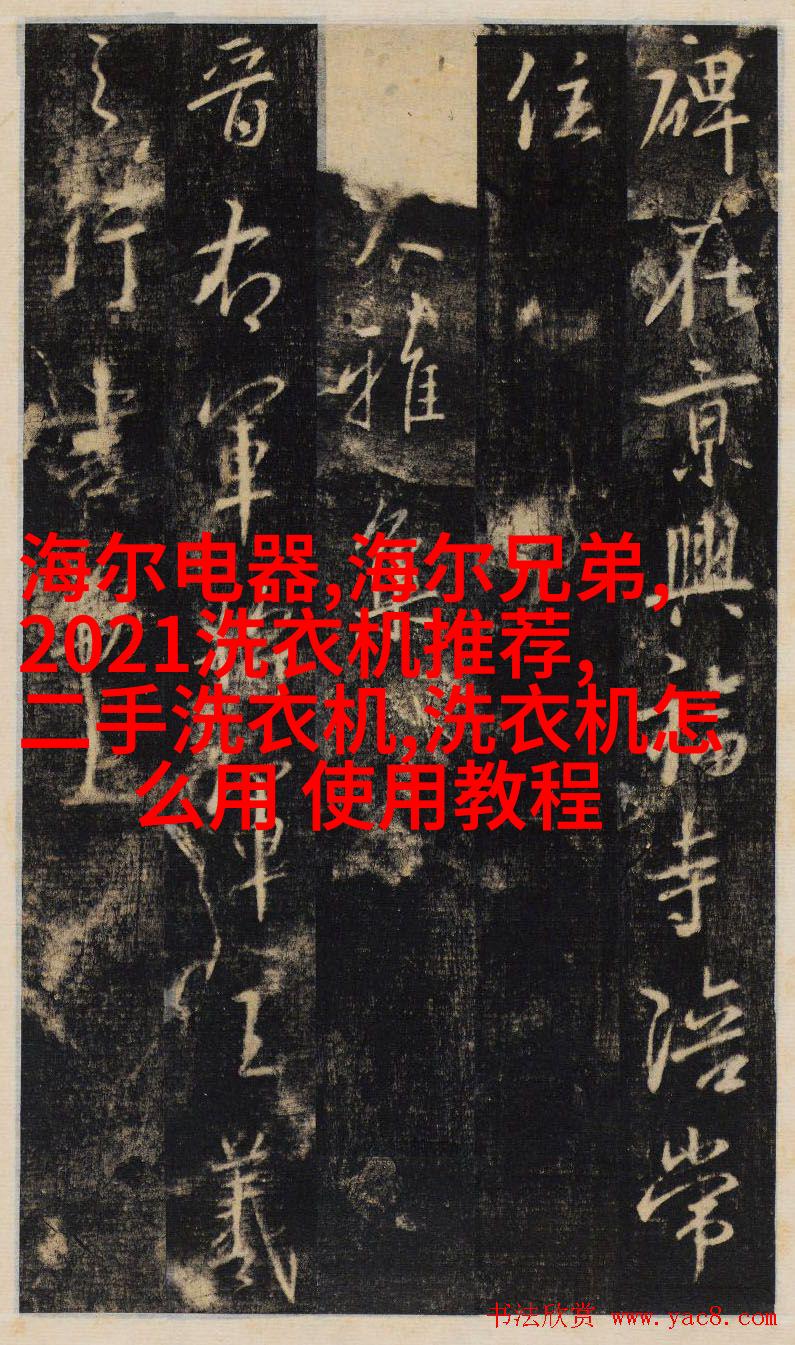 碑在京興福寺陪常
住
大雅集
晉右軍將軍王羲
之行書勒上
海尔电器,海尔兄弟,
2021洗衣机推荐,
二手洗衣机,洗衣机怎
么用 使用教程
书法欣赏 www.yac8.com